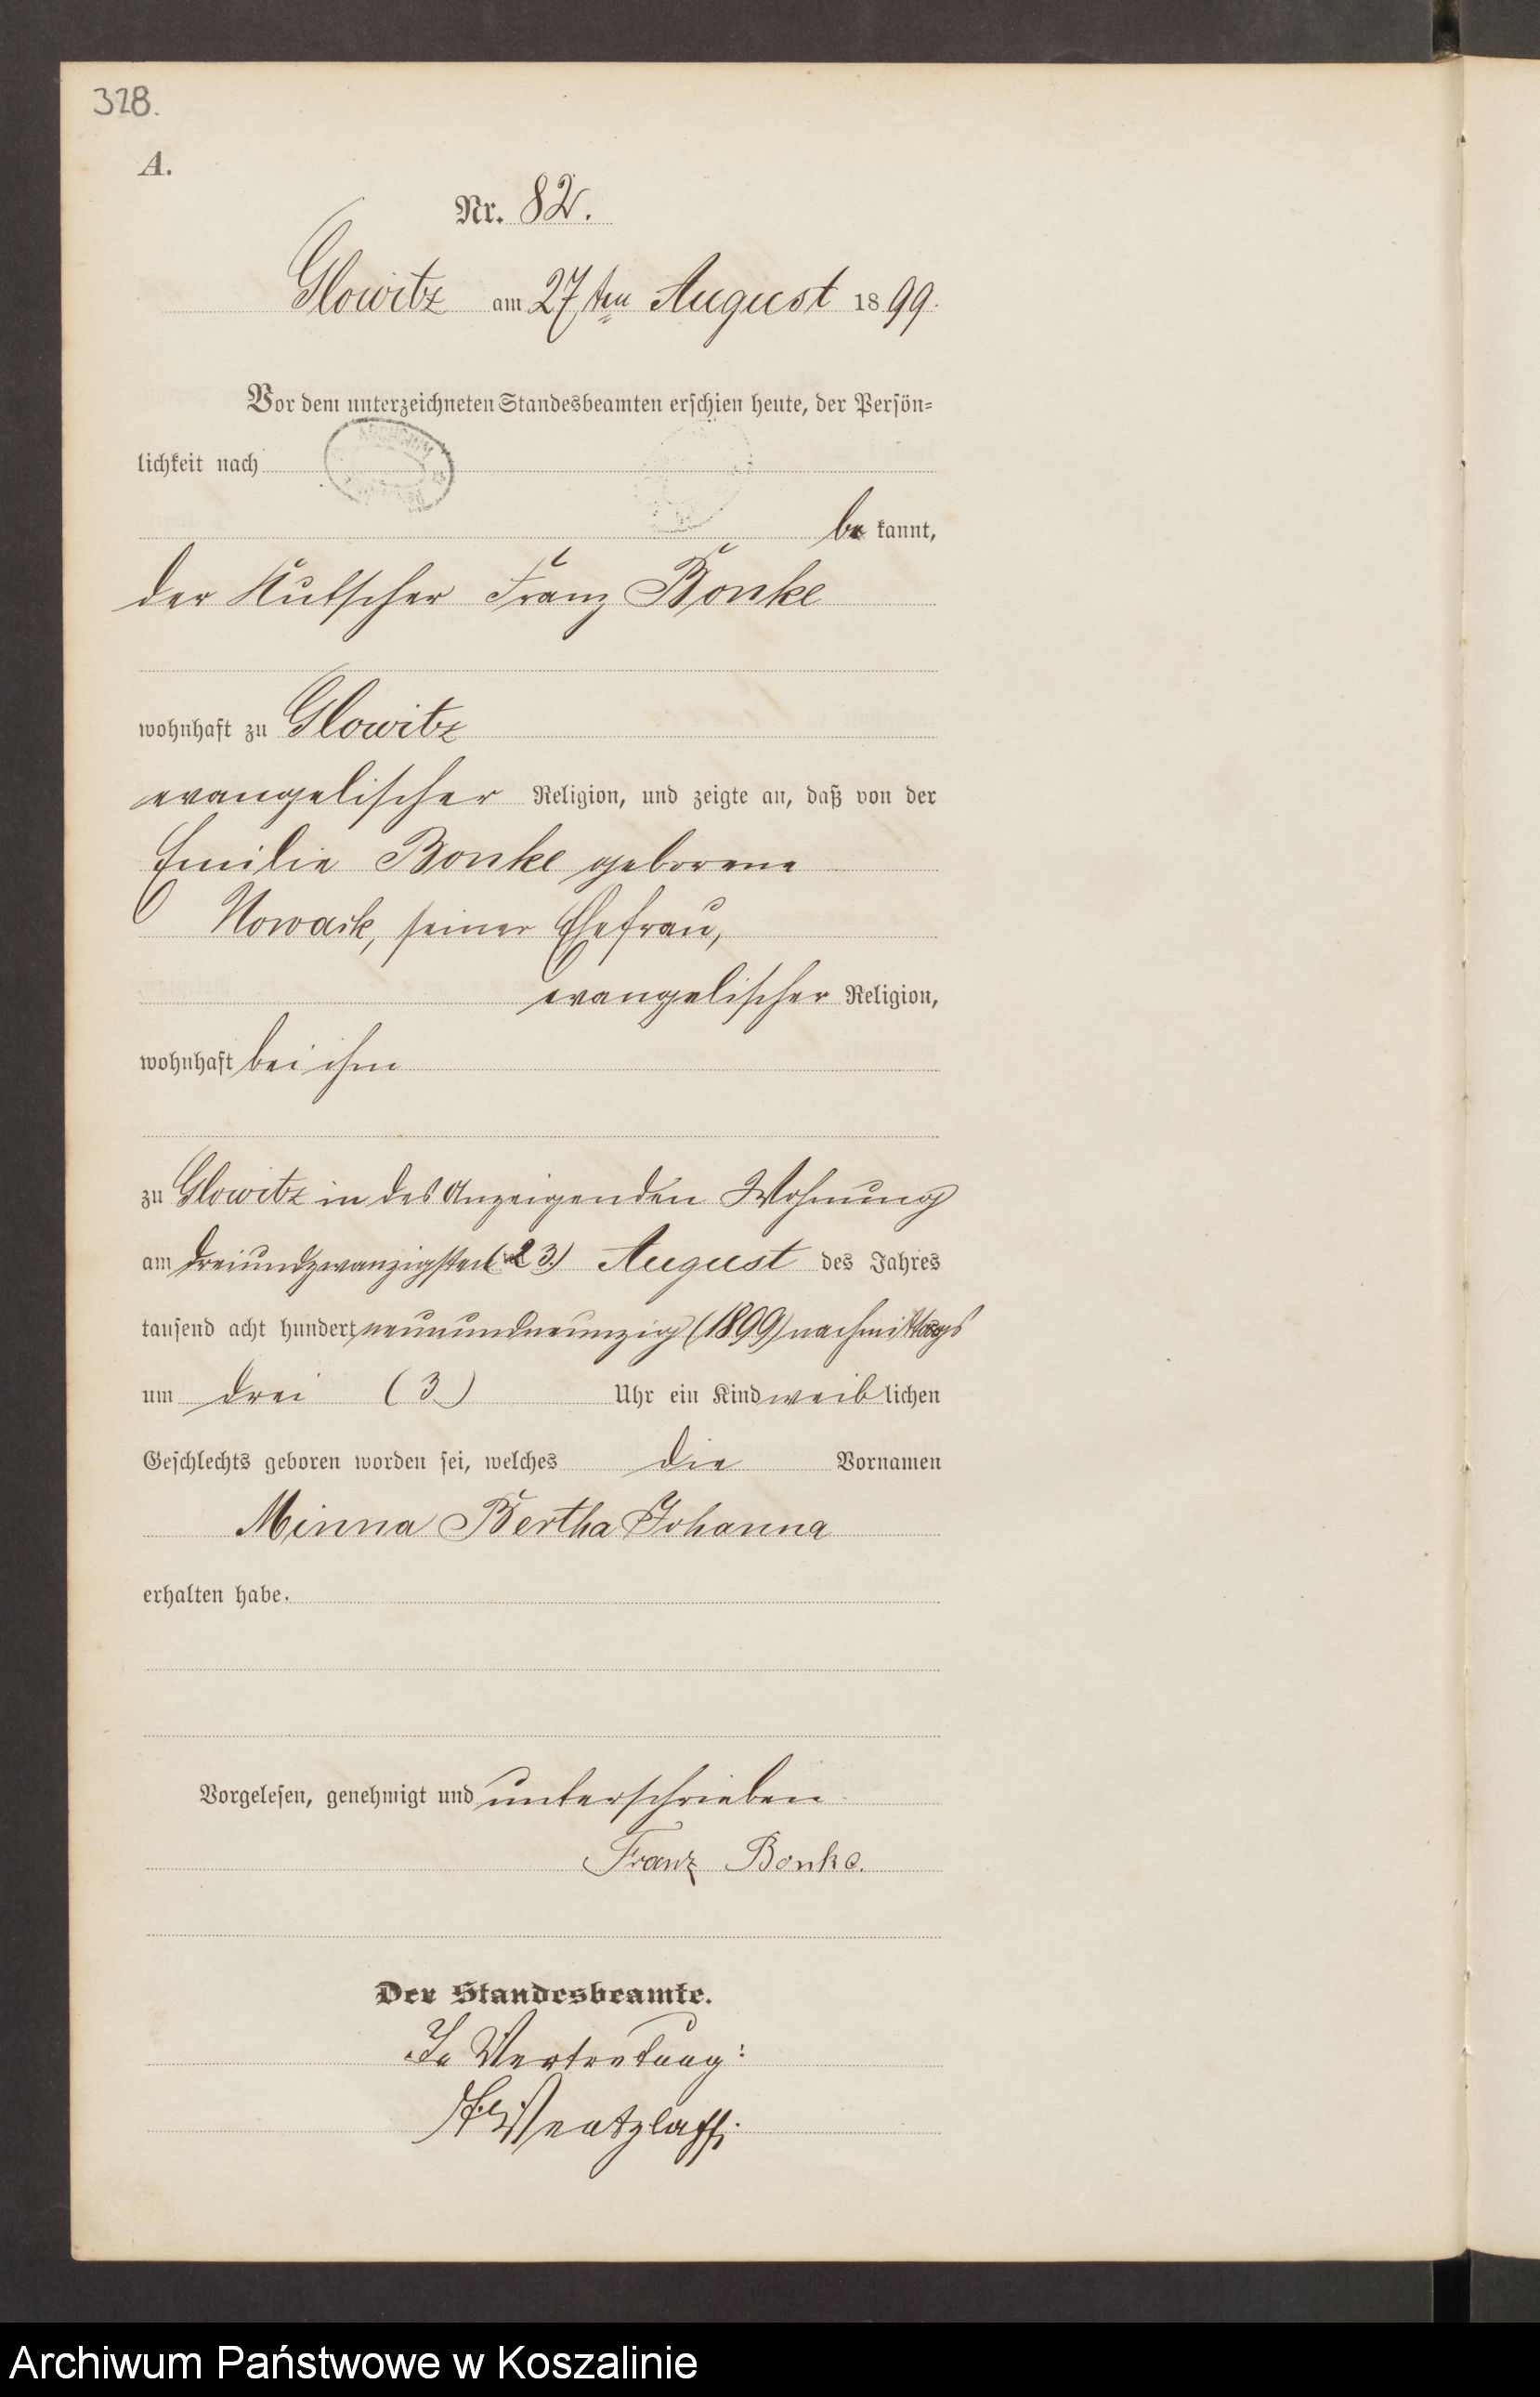 328.
A.
Nr. 82.
Glowitz am 27ten August 1899.
Vor dem unterzeichneten Standesbeamten erschien heute, der Persön=
lichkeit nach
be kannt,
der Kutscher Franz Bonke
wohnhaft zu Glowitz
evangelischer Religion, und zeigte an, daß von der
Emilie Bonke geborene
Nowack, seiner Ehefrau,
evangelischer Religion,
wohnhaft bei ihm
zu Glowitz in des Anzeigenden Wohnung
am dreiundzwanzigsten (23.) August des Jahres
tausend acht hundert neunundneunzig (1899) nachmittags
um drei (3) Uhr ein Kind weiblichen
Geschlechts geboren worden sei, welches die Vornamen
Minna Bertha Johanna
erhalten habe.
Vorgelesen, genehmigt und unterschrieben
Franz Bonke.
Der Standesbeamte.
In Vertretung:
Wentzlaff.
Archiwum Państwowe w Koszalinie